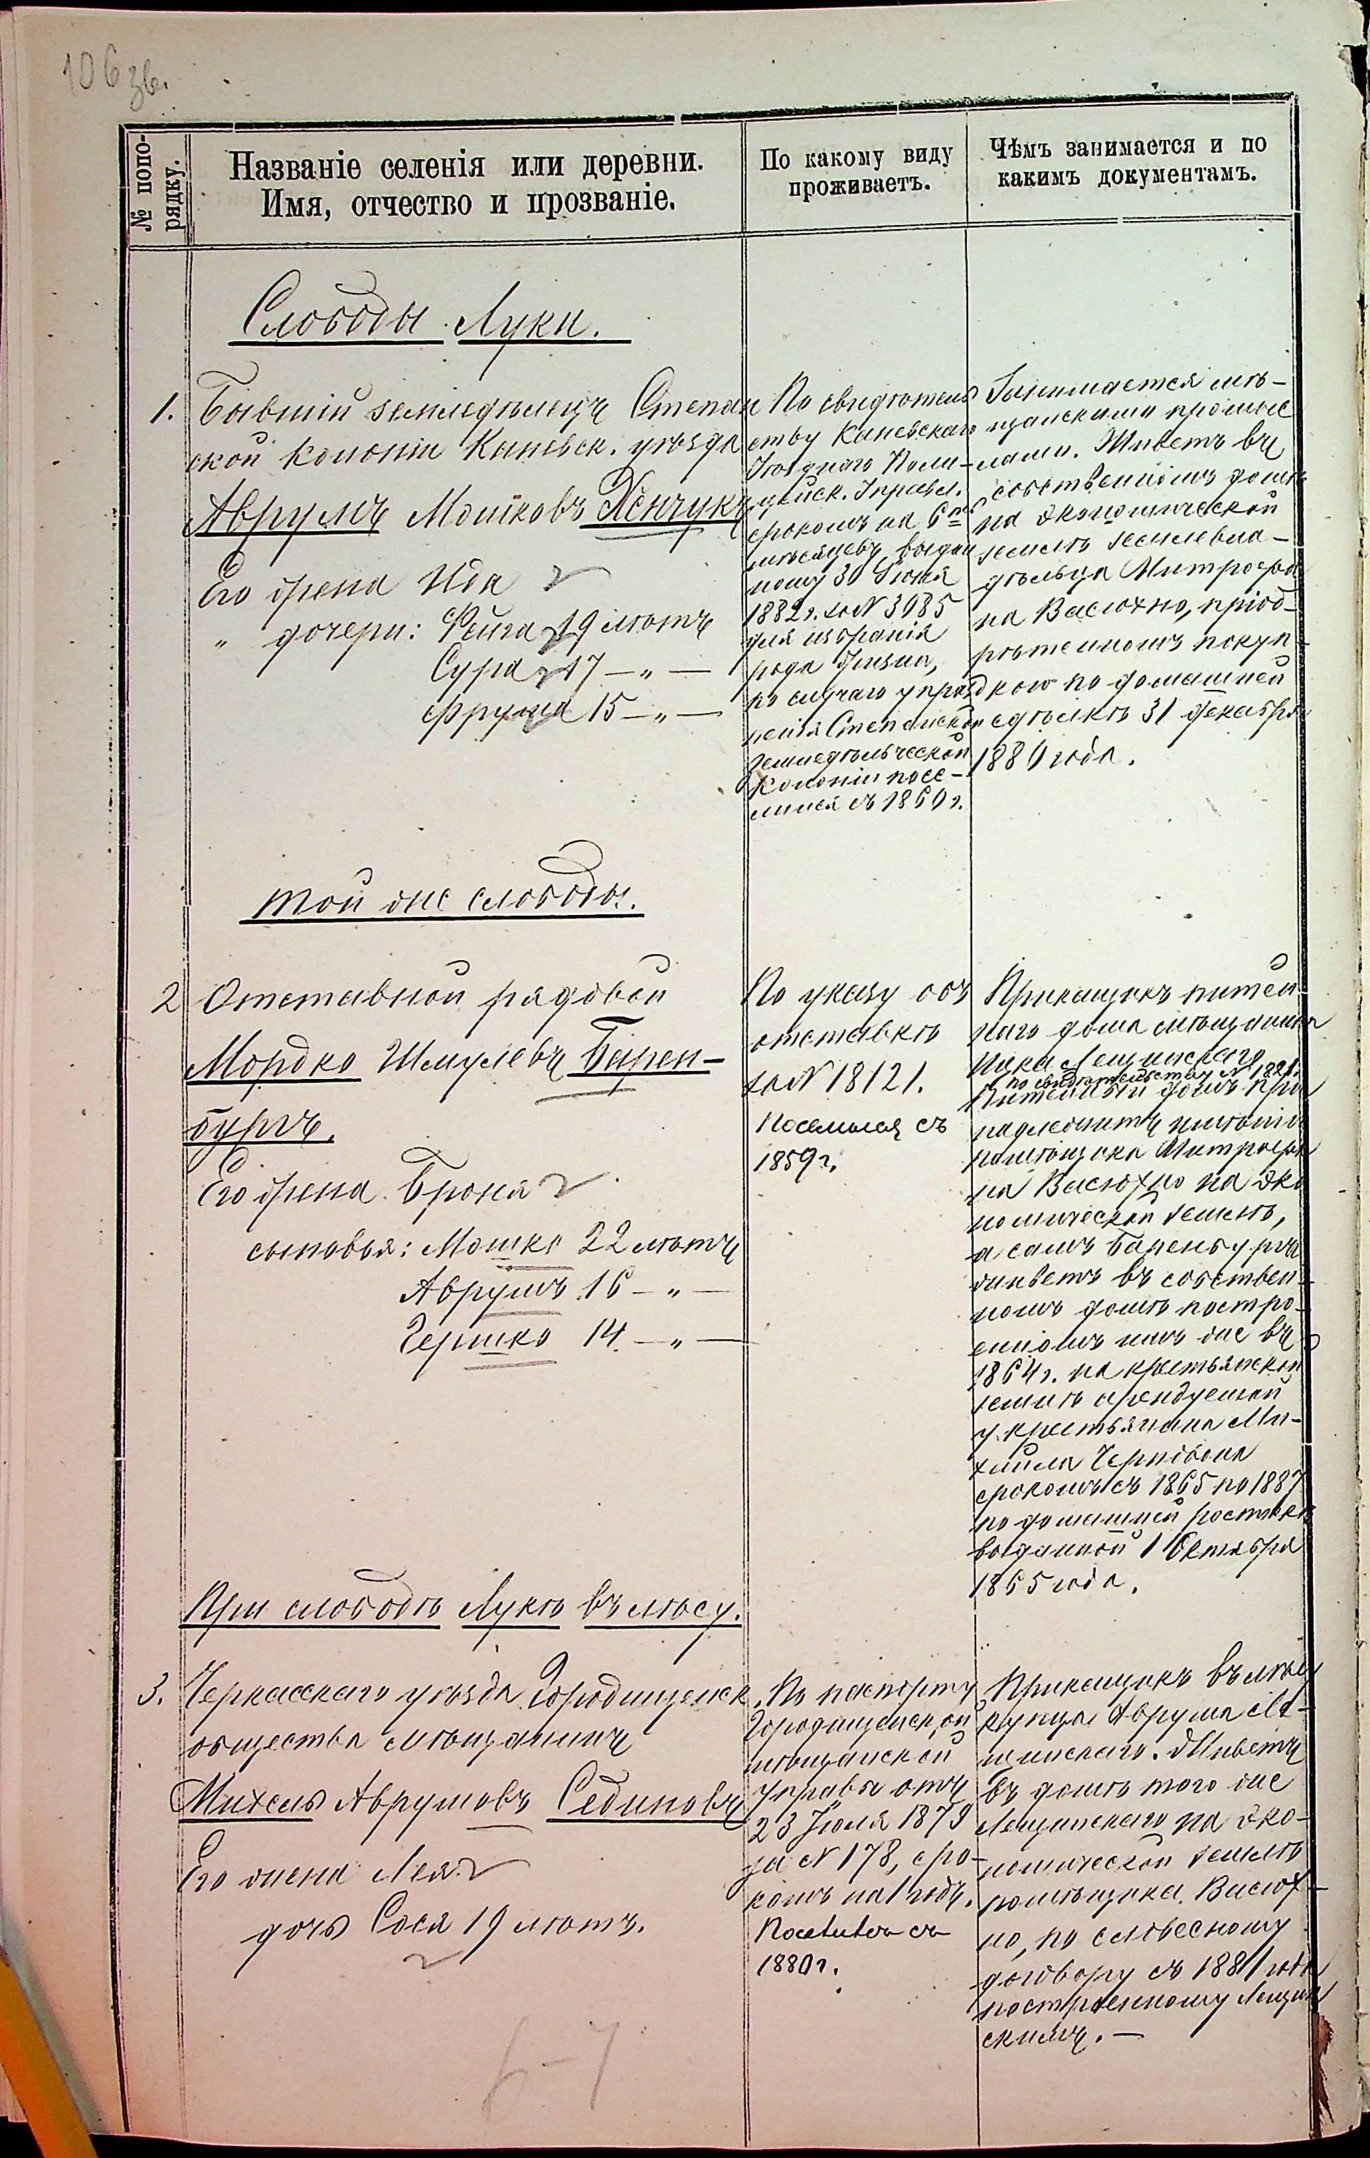 106 зв.
№ попо-
рядку.
Названіе селенія или деревни.
Имя, отчество и прозваніе.
По какому виду
проживаетъ.
Чѣмъ занимается и по
какимъ документамъ.
Слободы Луки.
1. Бывшій земледѣлецъ Степан
ской колоніи Каневск. уѣзда
Аврумъ Мошковъ
Его жена Ида
" дочери: Фейга 19 лѣтъ
Сура 17 — " —
Фрума 15 — " —
По свидѣтель
ству Каневскаго
Уѣзднаго Поли-
цейск. Управл.
срокомъ на 6
мѣсяцевъ выдан
ному 30 Іюня
1882 г. за № 3985
для избранія
рода жизни,
по случаю упразд
ненія Степанской
земледѣльческой
колоніи посе-
лился съ 1860 г.
Занимается мѣ-
щанскими промыс
лами. Живетъ въ
собственномъ домѣ
на экономической
землѣ землевла-
дѣльца Митрофа
на Васюхно, пріоб-
рѣтенномъ покуп-
кою по домашней
сдѣлкѣ 31 Декабря
1880 года.
Той же слободы.
2 Отставной рядовой
Мордко Шмулевъ Барен-
бургъ.
Его жена Броня
сыновья: Мошко 22 лѣтъ
Аврумъ 16 — " —
Гершко 14 — " —
По указу объ
отставкѣ
за № 18121.
Поселился съ
1859 г.
Прикащикъ питей
наго дома мѣщанина
Лещинскаго
по свидѣтельству №
Питейный домъ при
надлежитъ имѣнію
помѣщика Митрофа
на Васюхно на эко
номической землѣ,
а самъ Баренбургъ
живетъ въ собствен-
номъ домѣ постро-
енномъ имъ же въ
1864 г. на крестьянской
землѣ арендуемой
у крестьянина Ми-
хаила
срокомъ съ 1865 по 1887
по домашней
выданной 1 Октября
1865 года.
При слободѣ Лукѣ въ лѣсу.
3. Черкасскаго уѣзда Городищенск.
общества мѣщанинъ
Михель Аврумовъ Сединовъ
Его жена Лея
дочь Сося 19 лѣтъ.
По паспорту
Городищенской
мѣщанской
Управы отъ
23 Іюля 1879
за № 178, сро-
комъ на 1 годъ.
Поселился съ
1880 г.
Прикащикъ въ лѣсу
купца Аврума Ле-
щинскаго. Живетъ
въ домѣ того же
Лещинскаго на эко-
номической землѣ
помѣщика Васюх-
но, по словесному
договору съ 1881 года
построенному Лещин
скимъ. —